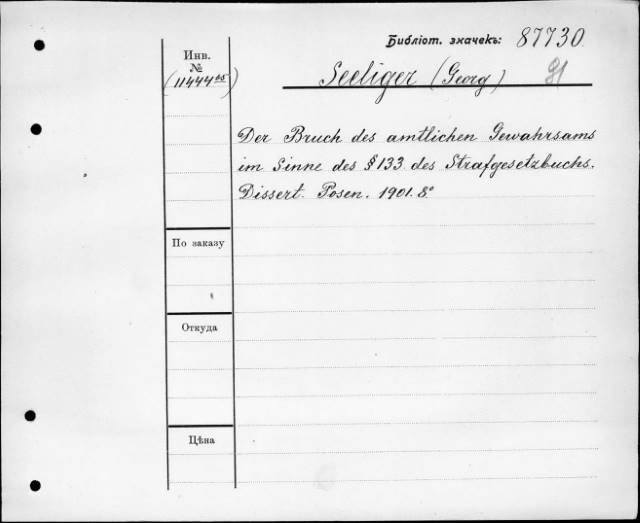 Библіот. значекъ: 87730
Инв.
№
(11444 05)
Seeliger (Georg)
Der Bruch des amtlichen Gewahrsams
im Sinne des § 133 des Strafgesetzbuchs.
Dissert. Posen. 1901. 8º
По заказу
Откуда
Цѣна